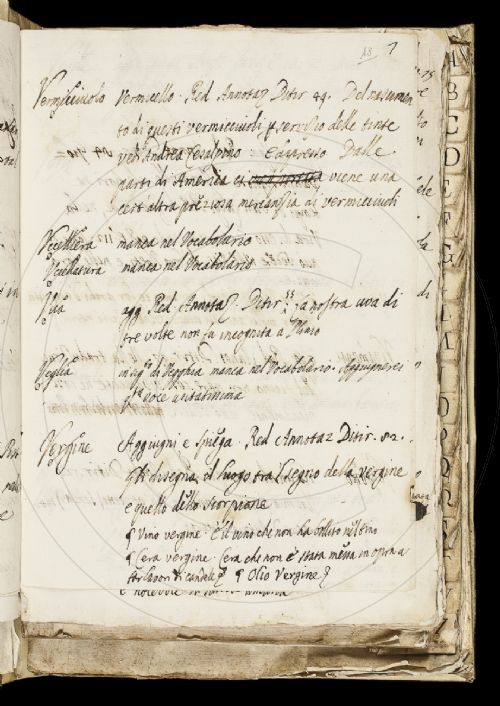 18 7
Vermicciuolo Vermicello. Red. Annotaz. Ditir. 44. Del nascimen
to di questi vermicciuoli p servisio delle tinte
ved. Andrea Cesalpino. E appresso Dalle
parti di America ci viene una
cert'altra preziosa mercanzia di vermicciuoli
Uccelliera manca nel Vocabolario
manca nel Vocabolario
Uva agg. Red. Annotaz. Ditir. La nostra uva di
tre volte non fu incognita a Plinio
Veglia in sig.to di Vegghia manca nel Vocabolario. Aggiugnerei
voce usitatissima
Vergine Aggiugni e spiega. Red. Annotaz. Ditir. 82.
disegna il luogo tra il segno della vergine
e quello dello scorpione
Vino vergine è il vino che non ha bollito nel tino
Cera vergine. Cera che non è stata messa in opra a
lavori di candele Olio Vergine
A
B
C
D
E
F
G